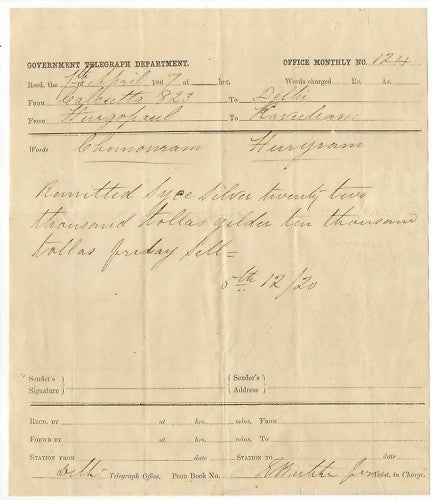 GOVERNMENT TELEGRAPH DEPARTMENT. OFFICE MONTHLY NO. 124
Recd. the 7th April 1867 at hrs. Words charged Rs. As.
FROM Calcutta 823 To Delhi
FROM Hurgopaul To
Words Chemonram Hurgram
Remitted Syce Silver twenty two
thousand tollas gilder ten thousand
tollas friday sell =
5th 12/20
Sender's Signature } { Sender's Address
RECD. BY at hrs. mins. FROM
FORWD BY at hrs. mins. TO
STATION FROM date STATION TO date
Delhi Telegraph Office, Peon Book No. Assist. in Charge.